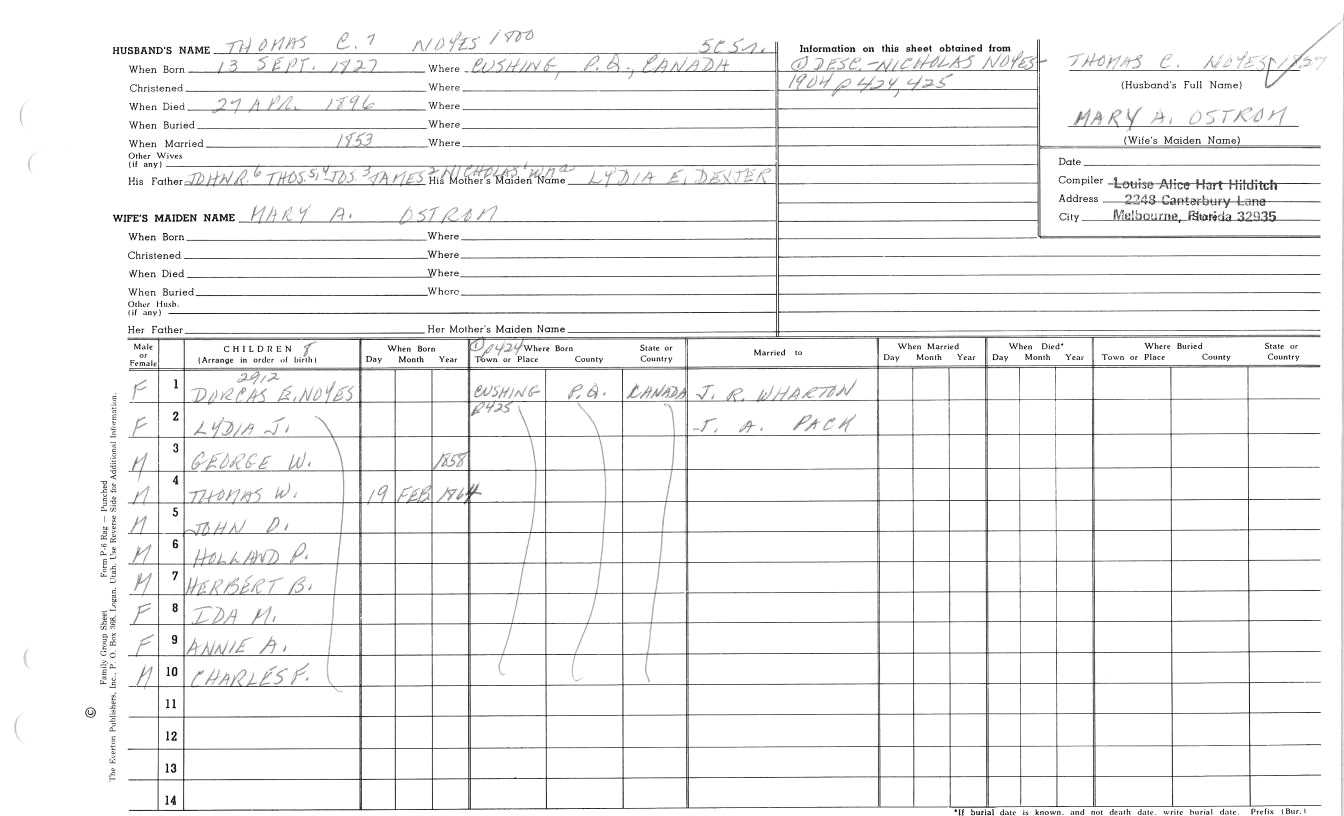 HUSBAND'S NAME THOMAS C. 7 NOYES 1800 5C 5n.
When Born 13 SEPT. 1827 Where CUSHING, P.Q., CANADA
Christened Where
When Died 27 APR. 1896 Where
When Buried Where
When Married 1853 Where
Other Wives
(if any)
His Father JOHN R. 6 THOS. 5, 4 JOS. 3 JAMES 2 NICHOLAS 1 WM a His Mother's Maiden Name LYDIA E. DEXTER
WIFE'S MAIDEN NAME MARY A. OSTROM
When Born Where
Christened Where
When Died Where
When Buried Where
Other Husb.
(if any)
Her Father Her Mother's Maiden Name
Information on this sheet obtained from
① DESC.-NICHOLAS NOYES-
1904 p 424, 425
THOMAS C. NOYES 1827
(Husband's Full Name)
MARY A. OSTROM
(Wife's Maiden Name)
Date
Compiler Louise Alice Hart Hilditch
Address 2248 Canterbury Lane
City Melbourne, Florida 32935 State
Male or Female
CHILDREN
(Arrange in order of birth)
When Born
Day Month Year
① p424 Where Born
Town or Place County State or Country
Married to
When Married
Day Month Year
When Died*
Day Month Year
Where Buried
Town or Place County State or Country
2912
F 1 DORCAS E. NOYES CUSHING P.Q. CANADA J. R. WHARTON
p425
F 2 LYDIA J. J. A. PACK
M 3 GEORGE W. 1858
M 4 THOMAS W. 19 FEB 1864
M 5 JOHN D.
M 6 HOLLAND P.
M 7 HERBERT B.
F 8 IDA M.
F 9 ANNIE A.
M 10 CHARLES F.
11
12
13
14
*If burial date is known, and not death date, write burial date. Prefix (Bur.)
Family Group Sheet Form P-6 Rag — Punched
© The Everton Publishers, Inc., P. O. Box 368, Logan, Utah. Use Reverse Side for Additional Information.